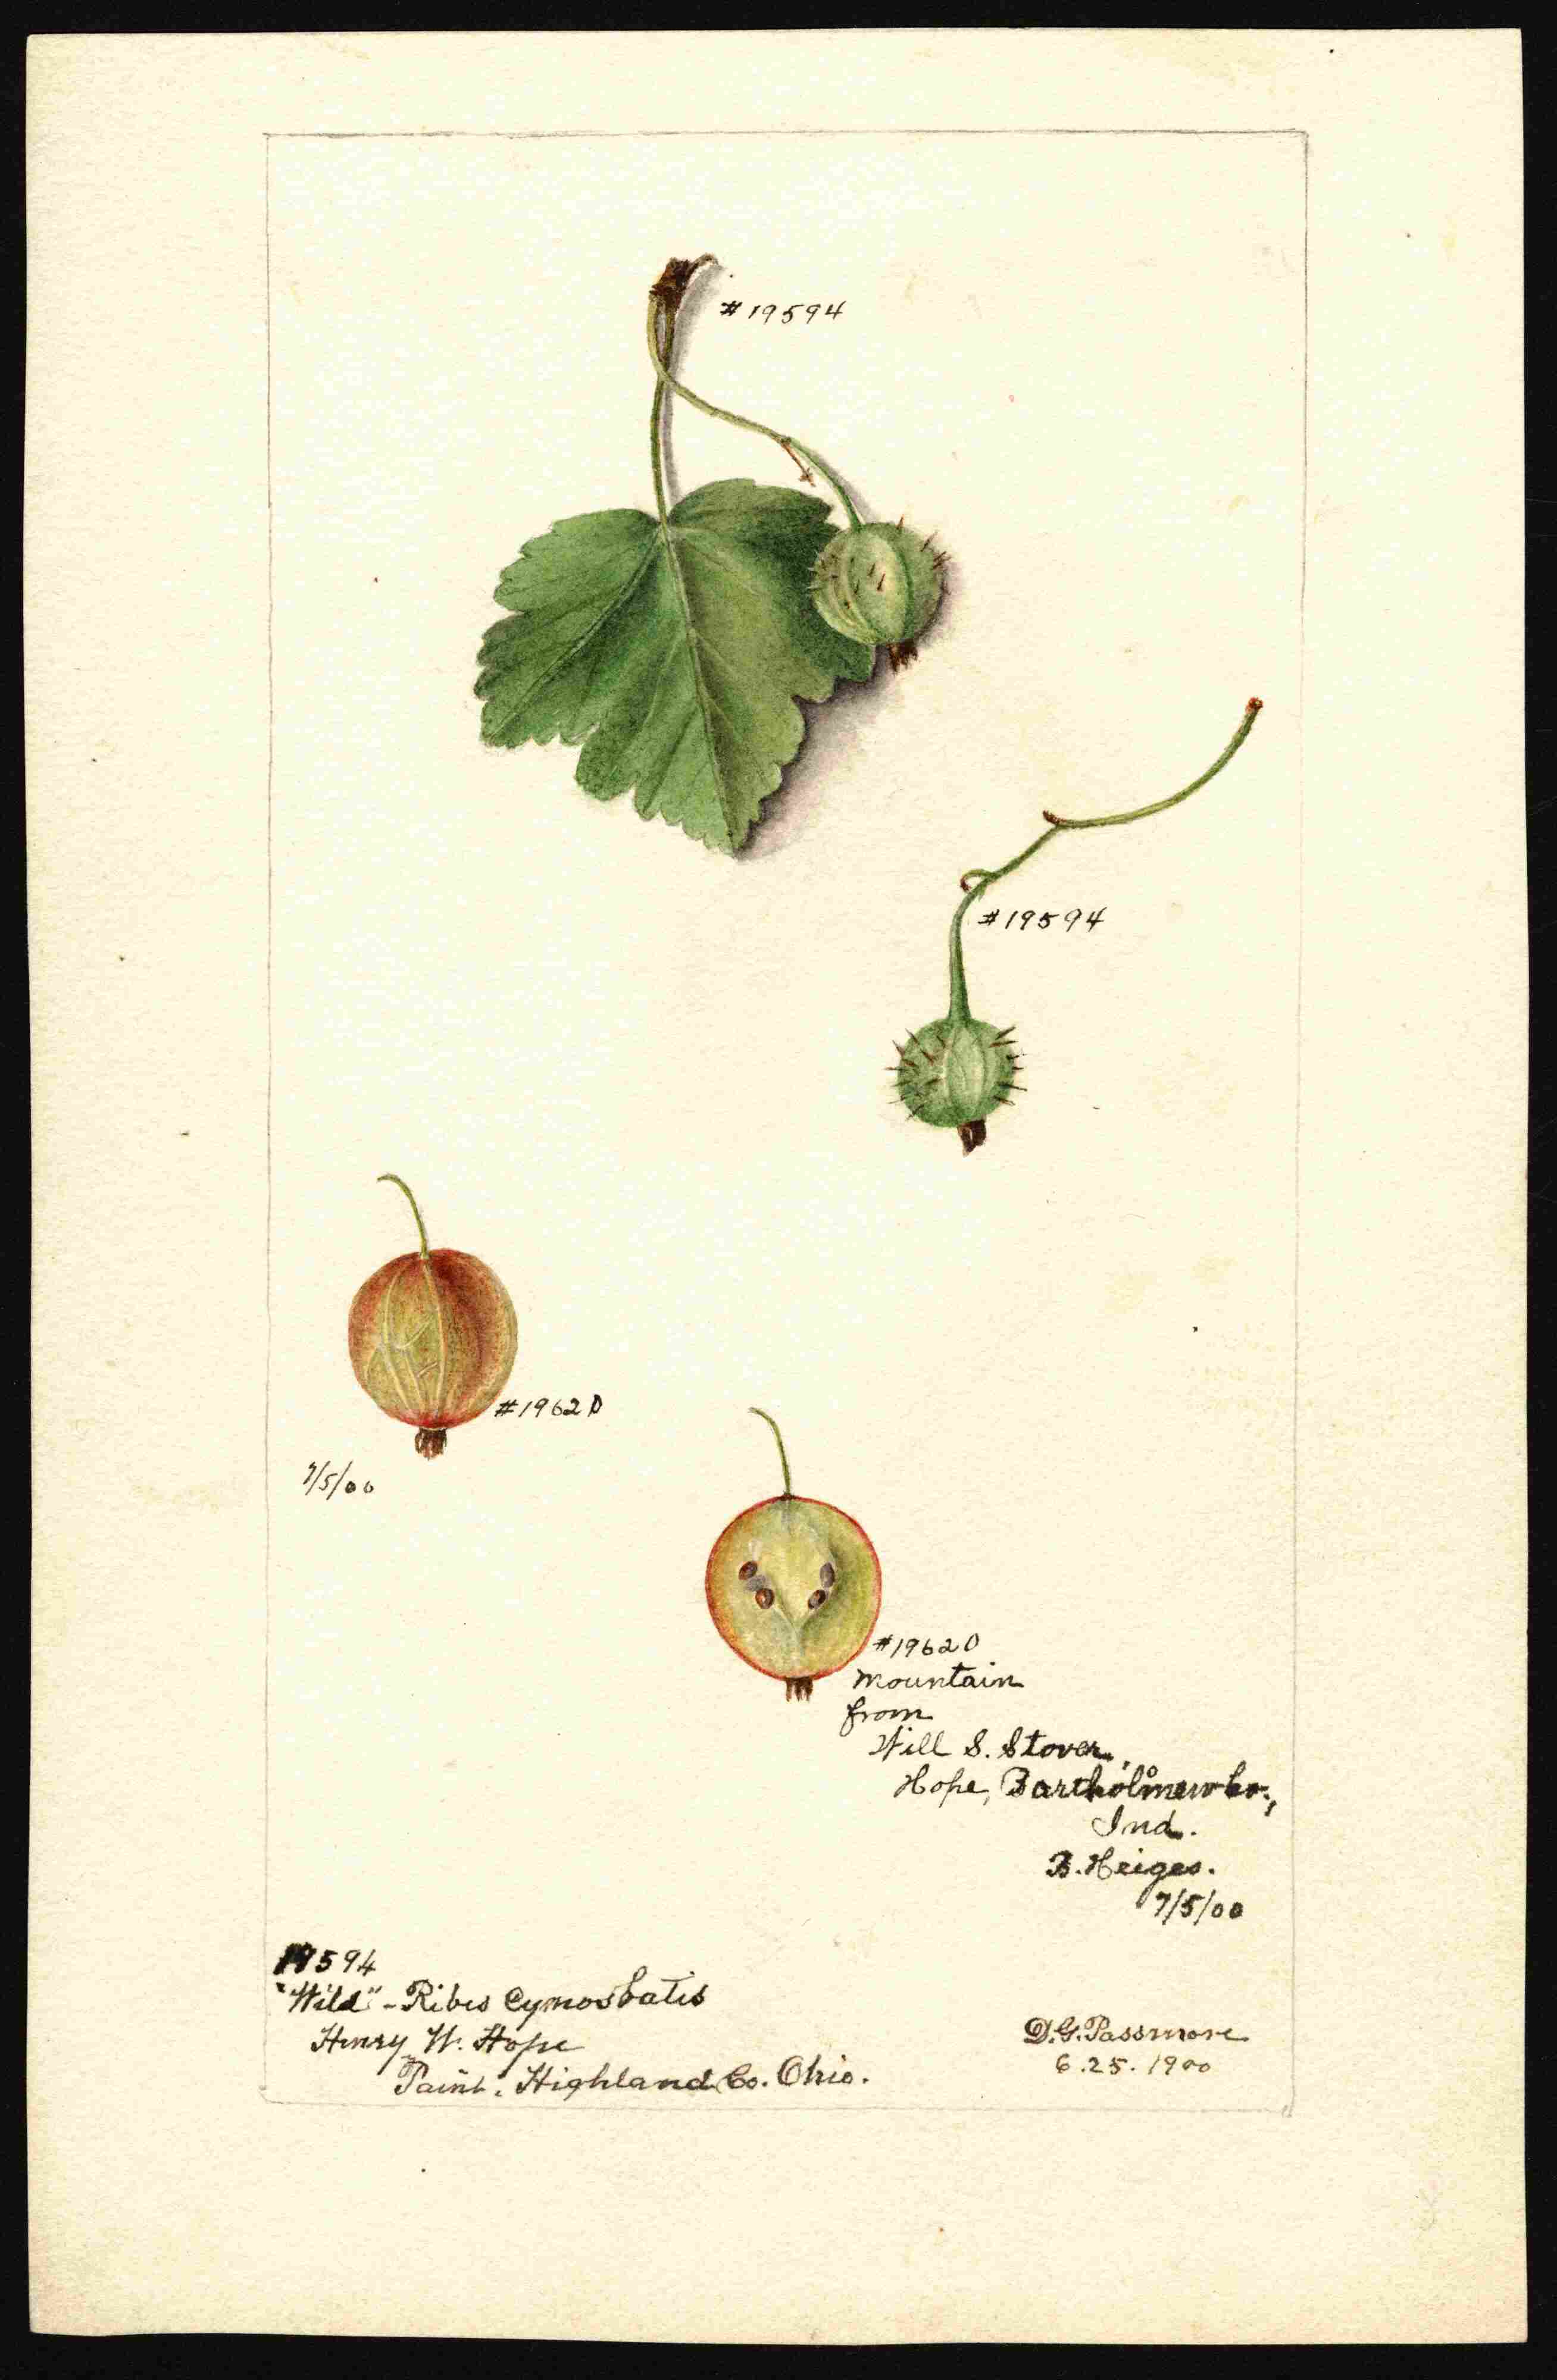 #19594
#19594
#19620
7/5/00
#19620
Mountain
from
Will S. Stover,
Hope, Bartholomew Co.,
Ind.
B. Heiges.
7/5/00
19594
"Wild" - Ribes Cynosbatis
Henry W. Hope
Paint, Highland Co. Ohio.
D.G. Passmore
6.25.1900